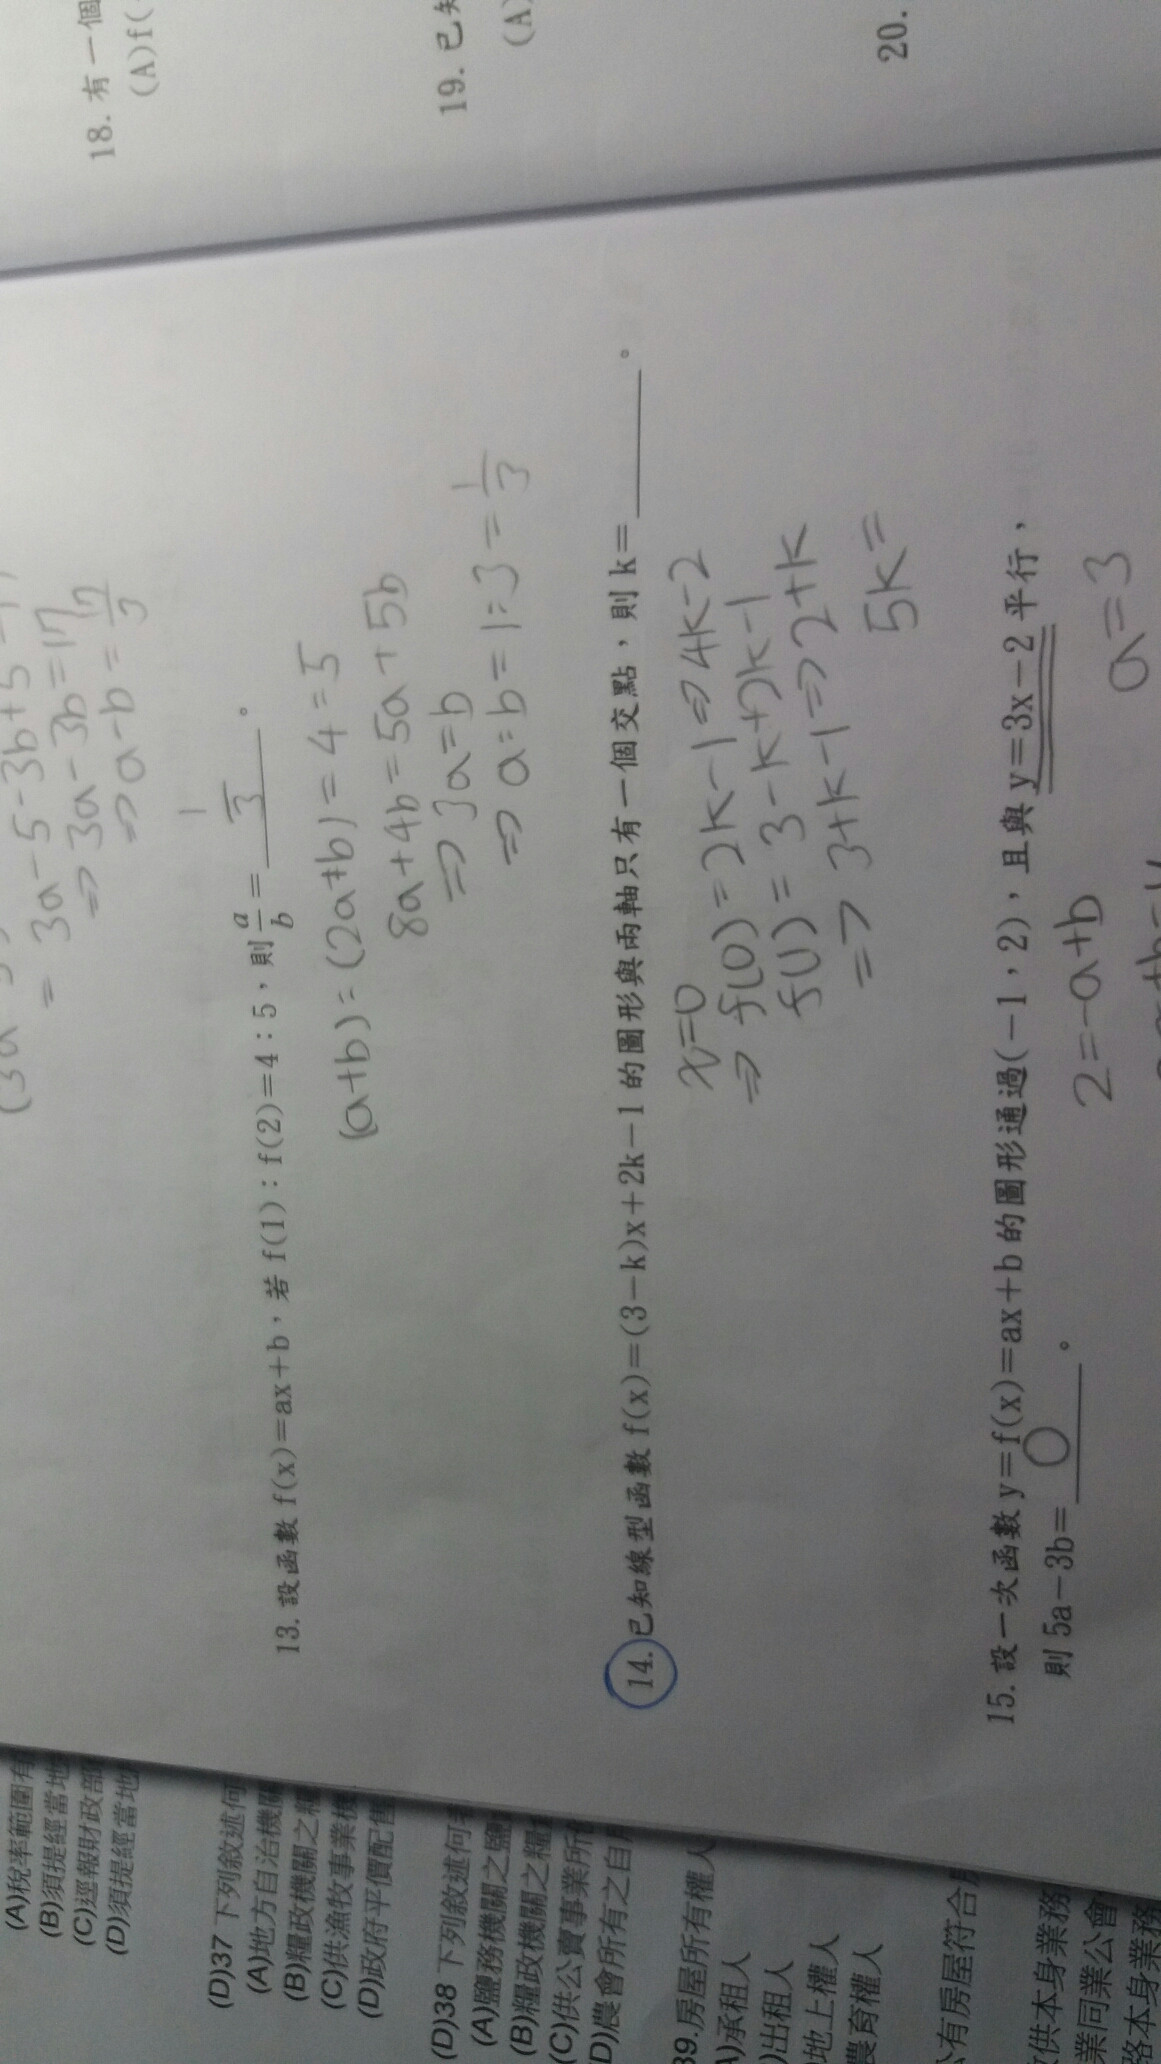 18. 有一個
(A)f(
19. 已
(A)
20.
3a-5-3b+5
= 3a-3b=17
⇒ a-b=17/3
13. 設函數 f(x)=ax+b,若 f(1):f(2)=4:5,則 a/b = 1/3 。
(a+b):(2a+b)=4=5
8a+4b=5a+5b
⇒ 3a=b
⇒ a:b=1:3=1/3
14. 已知線型函數 f(x)=(3-k)x+2k-1 的圖形與兩軸只有一個交點,則 k= 。
x=0
⇒ f(0)=2k-1⇒4k-2
f(1)=3-k+2k-1
⇒ 3+k-1⇒2+k
5k=
15. 設一次函數 y=f(x)=ax+b 的圖形通過(-1,2),且與 y=3x-2 平行,
則 5a-3b= 0 。
2=-a+b
a=3
(A)稅率範圍有
(B)須提經當地
(C)逕報財政部
(D)須提經當地
(D)37 下列敘述何
(A)地方自治機關
(B)糧政機關之糧
(C)供漁牧事業
(D)政府平價配售
(D)38 下列敘述何
(A)鹽務機關之鹽
(B)糧政機關之糧
(C)供公賣事業所
D)農會所有之自
39.房屋所有權人
)承租人
)出租人
)地上權人
農育權人
公有房屋符合
供本身業務
業同業公會
本身業務